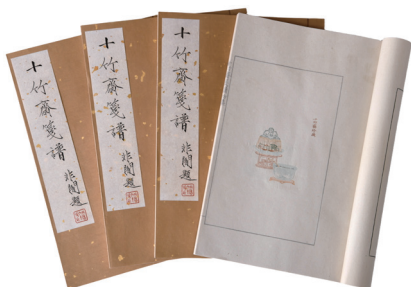 十竹齋箋譜
非闇題
十竹齋箋譜
非闇題
十竹齋箋譜
非闇題